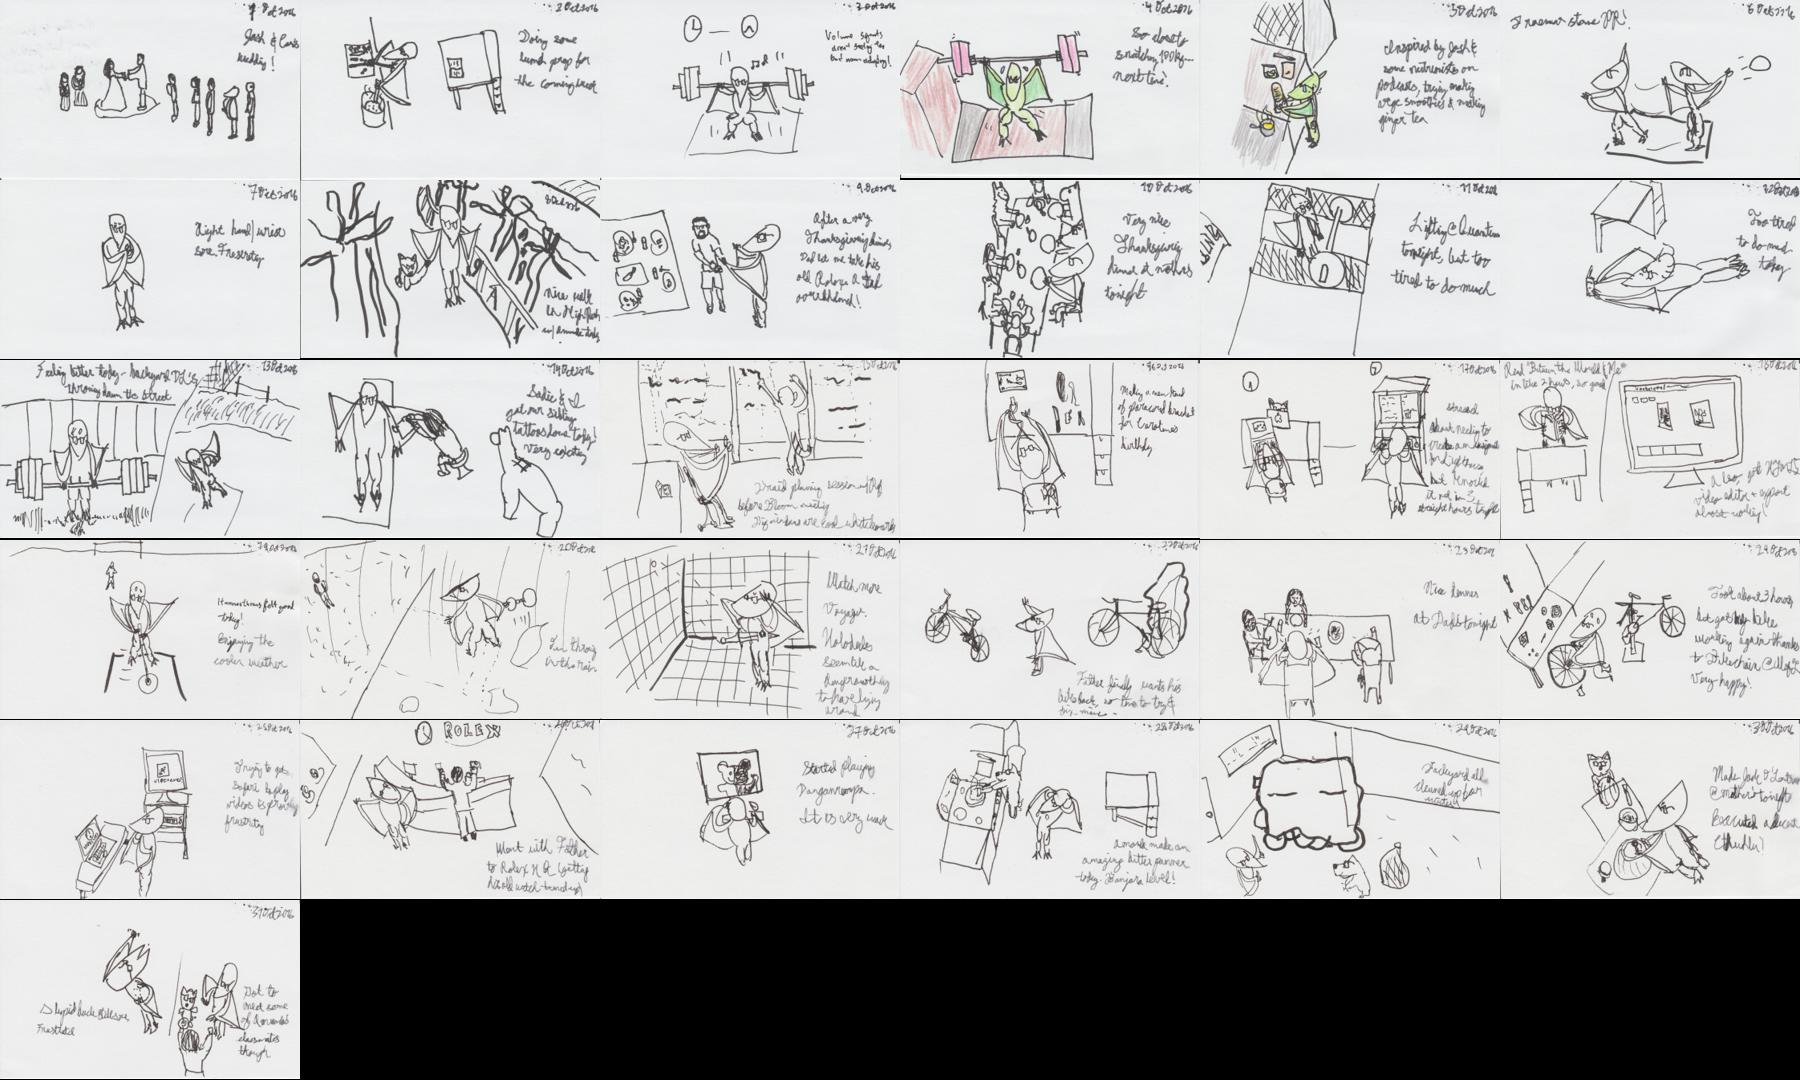 1 Oct 2016
Josh &
wedding!
2 Oct 2016
Doing some
lunch prep for
the coming week
3 Oct 2016
Volume squats
4 Oct 2016
So close to
snatching 100kg...
next time!
5 Oct 2016
Inspired by Josh &
some nutritionists on
podcasts, trying making
vege smoothies & making
ginger tea
6 Oct 2016
stone PR!
7 Oct 2016
Right hand/wrist
sore. Frustrating
8 Oct 2016
Nice walk
in High Park
w/
9 Oct 2016
After a very
Thanksgiving dinner,
Dad let me take his
old Rolex &
10 Oct 2016
Very nice
Thanksgiving
dinner at mother's
tonight
11 Oct 2016
Lifting @ Quantum
tonight, but too
tired to do much
12 Oct 2016
Too tired
to do much
today
13 Oct 2016
Feeling better today - backyard DL's
throwing down the street
14 Oct 2016
Sadie & I
got our sibling
tattoos done today!
Very exciting
15 Oct 2016
planning session
before Bloom meeting
Big windows are cool whiteboards
16 Oct 2016
Making a new kind
of paracord bracelet
for Caroline's
birthday
17 Oct 2016
stressed
about needing to
create an
for
but
it out in 3
straight hours tonight
18 Oct 2016
Read "Between the World & Me"
in like 2 hours, so good
also, got
video editor + export
almost working!
19 Oct 2016
Hammer throws felt good
today!
Enjoying the
cooler weather
20 Oct 2016
Fun throwing
in the rain
21 Oct 2016
Watch more
Voyager.
Holodecks
seem like a
dangerous thing
to have lying
around
22 Oct 2016
Father finally wants his
bike back, so time to try &
fix mine
23 Oct 2016
Nice dinner
at Dad's tonight
24 Oct 2016
Took about 3 hours
but got my bike
working again thanks
to Bikechain @ UofT
Very happy!
25 Oct 2016
Trying to get
Safari to play
videos is proving
frustrating
26 Oct 2016
ROLEX
Went with Father
to Rolex HQ getting
his old watch tuned up
27 Oct 2016
Started playing
Danganronpa.
It is very weird
28 Oct 2016
make an
amazing butter paneer
today. Banjara level!
29 Oct 2016
Backyard all
cleaned up for
30 Oct 2016
Made Jack O'Lanterns
@ mother's tonight
Executed a decent
Cthulhu!
31 Oct 2016
Stupid back still sore.
Frustrated
Got to
meet some
of
classmates
though